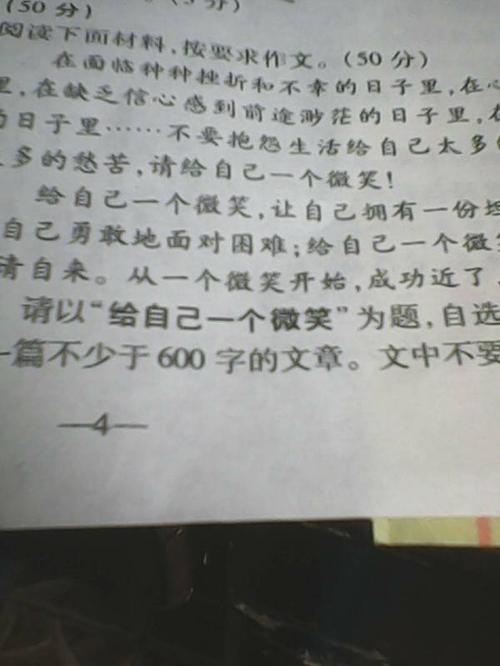 (50分)
阅读下面材料,按要求作文。(50分)
在面临种种挫折和不幸的日子里,在心
里,在缺乏信心感到前途渺茫的日子里,在
的日子里……不要抱怨生活给自己太多的
多的愁苦,请给自己一个微笑!
给自己一个微笑,让自己拥有一份坦
自己勇敢地面对困难;给自己一个微笑
请自来。从一个微笑开始,成功近了,
请以“给自己一个微笑”为题,自选
一篇不少于600字的文章。文中不要
—4—